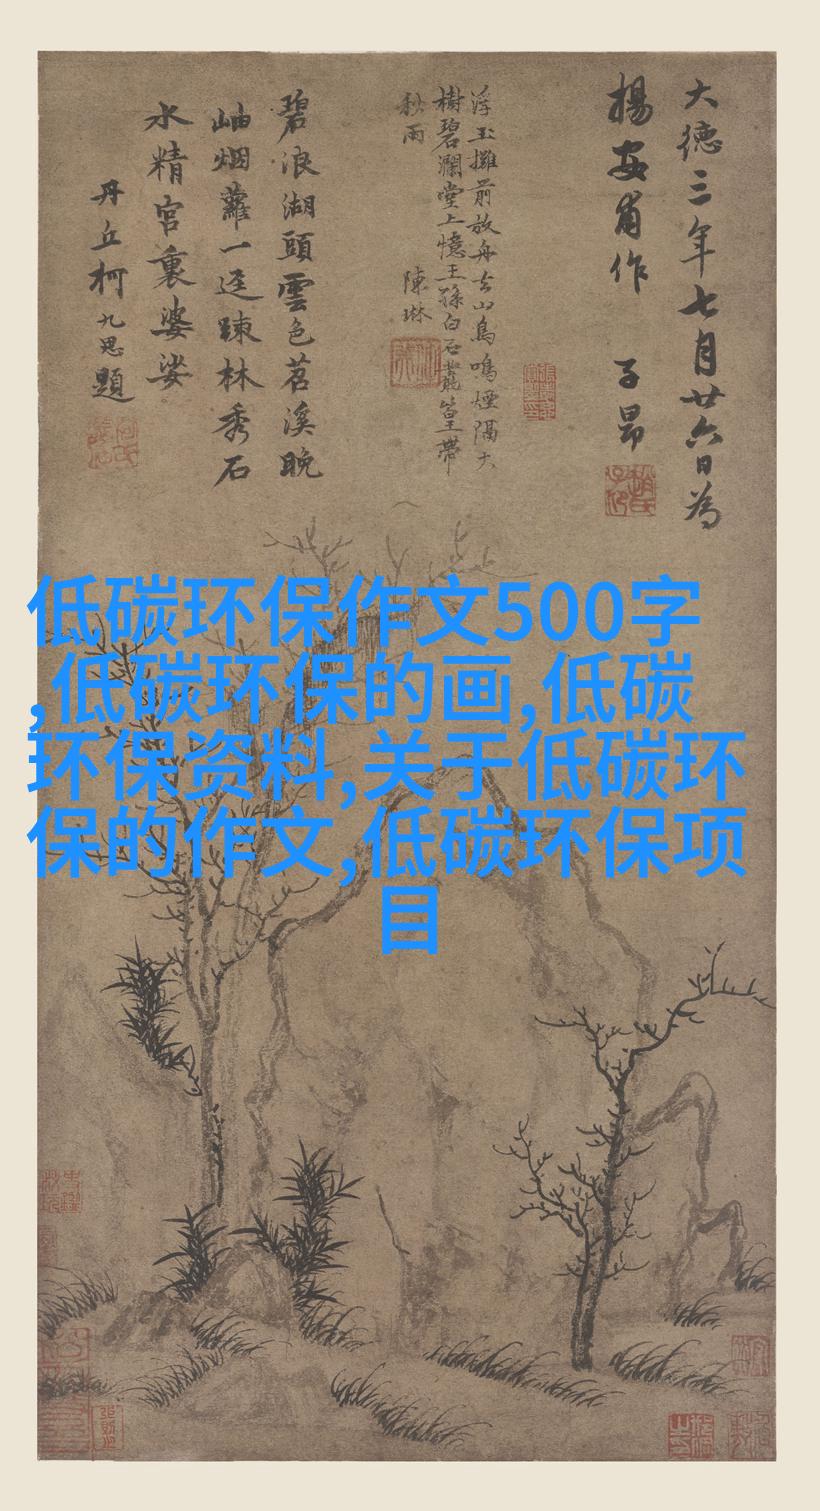 大德三年七月廿六日為
楊安甫作 子昂
浮玉攤前放舟去山鳥鳴煙隔大
樹碧瀾堂上憶王孫白石叢篁帶
秋雨 陳琳
碧浪湖頭雲色苕溪晚
岫烟蘿一逕踈林秀石
水精宮裏婆娑
丹丘柯九思題
低碳环保作文500字
,低碳环保的画,低碳
环保资料,关于低碳环
保的作文,低碳环保项
目